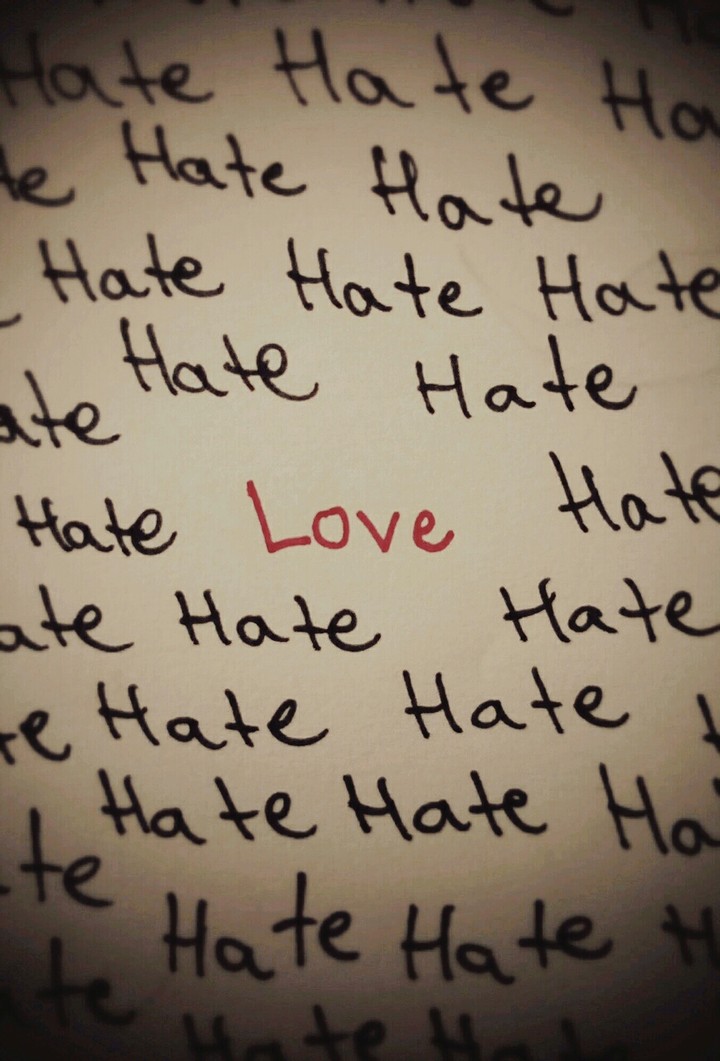 Hate Hate Ha
te Hate Hate
Hate Hate Hate
Hate Hate
ate
Hate Love Hate
ate Hate Hate
te Hate Hate t
Hate Hate Ha
te
Hate Hate H
ate
Hate Hate